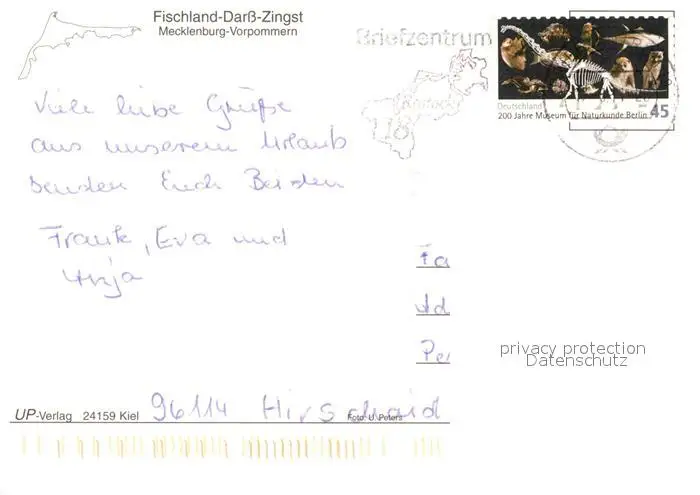 Fischland-Darß-Zingst
Mecklenburg-Vorpommern
Briefzentrum
18
Deutschland
200 Jahre Museum für Naturkunde Berlin 45
Viele liebe Grüße
aus unserem Urlaub
senden Euch Beiden
Frank, Eva und
Anja
Fa
Ad
Pe
privacy protection
Datenschutz
UP-Verlag 24159 Kiel
Foto: U. Peters
96114 Hirschaid